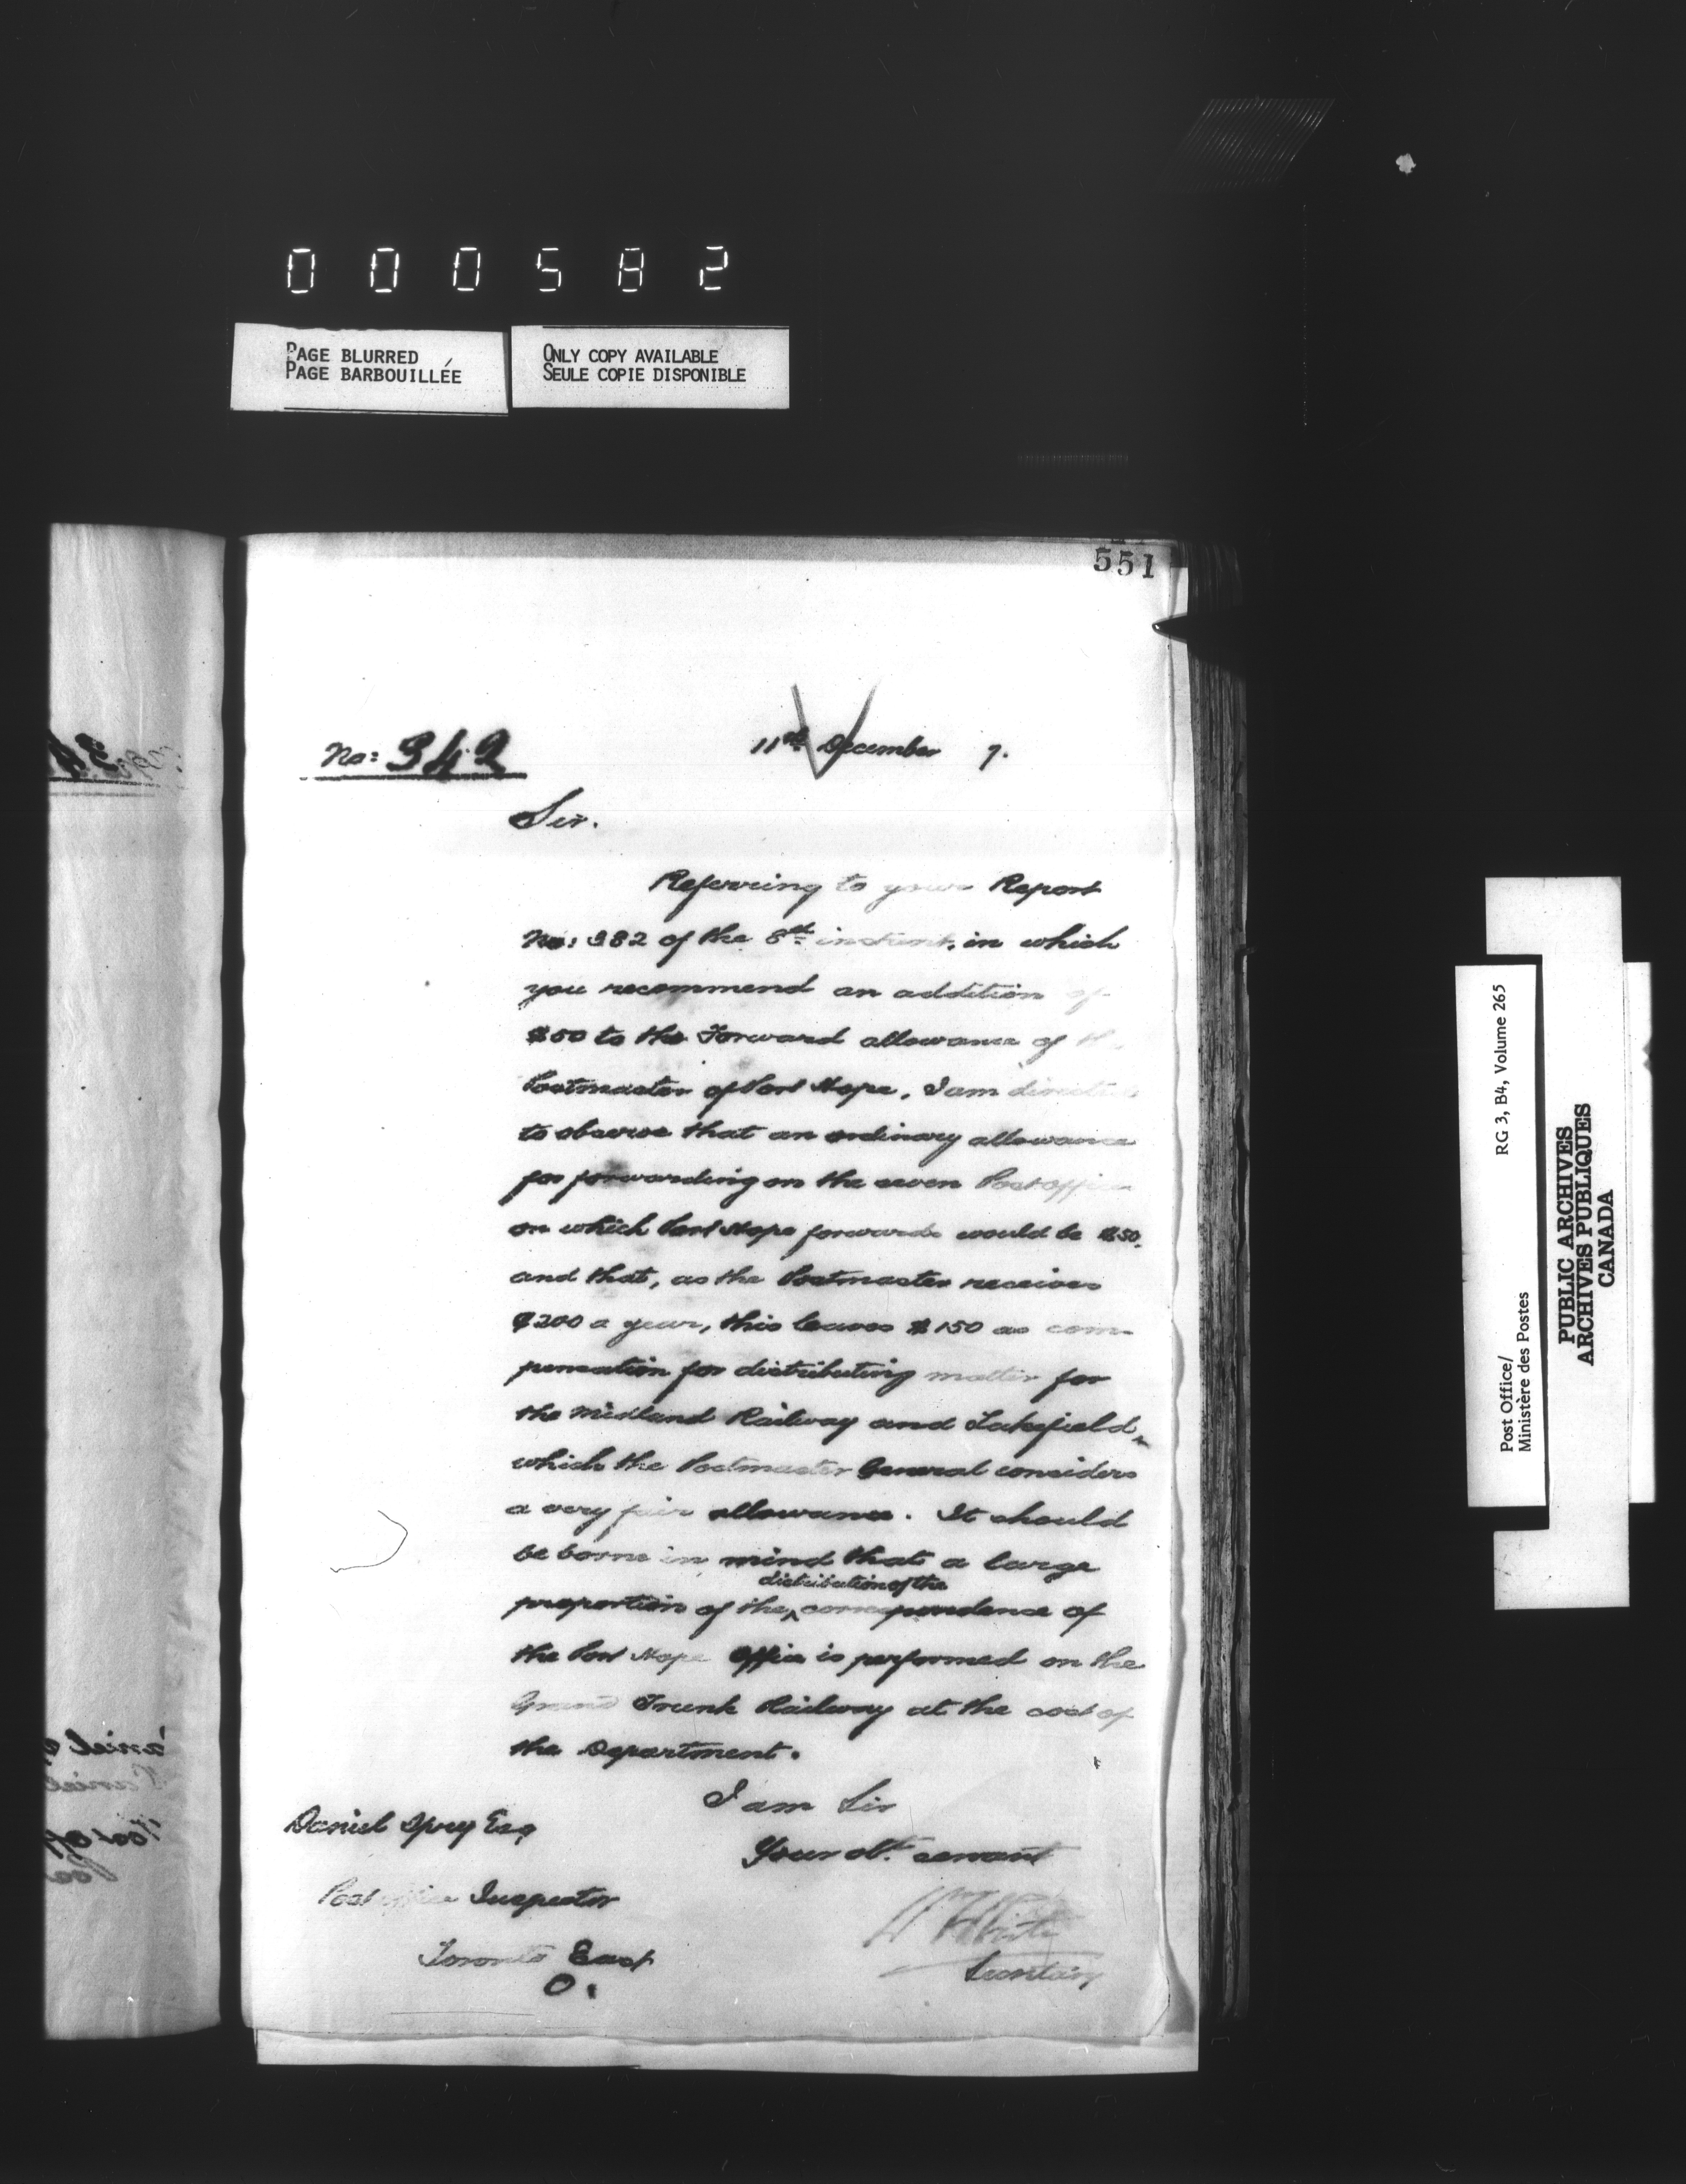 000582
PAGE BLURRED
PAGE BARBOUILLÉE
ONLY COPY AVAILABLE
SEULE COPIE DISPONIBLE
551
No: 342
11th December 7.
Sir.
Referring to your Report
No: 382 of the 8th instant, in which
you recommend an addition of
$50 to the Forward allowance of the
Postmaster of Port Hope, I am directed
to observe that an ordinary allowance
for forwarding on the seven Post offices
on which Port Hope forwards would be $50.
and that, as the Postmaster receives
$200 a year, this leaves $150 as com-
pensation for distributing matter for
the Midland Railway and Lakefield,
which the Postmaster General considers
a very fair allowance. It should
be borne in mind that a large
distribution of the
proportion of the ^ correspondence of
the Port Hope Office is performed on the
Grand Trunk Railway at the cost of
the Department.
I am Sir
Your obt. servant
Daniel Spry Esq
Post office Inspector
Toronto East
O.
White
Secretary
Post Office/ RG 3, B4, Volume 265
Ministère des Postes
PUBLIC ARCHIVES
ARCHIVES PUBLIQUES
CANADA